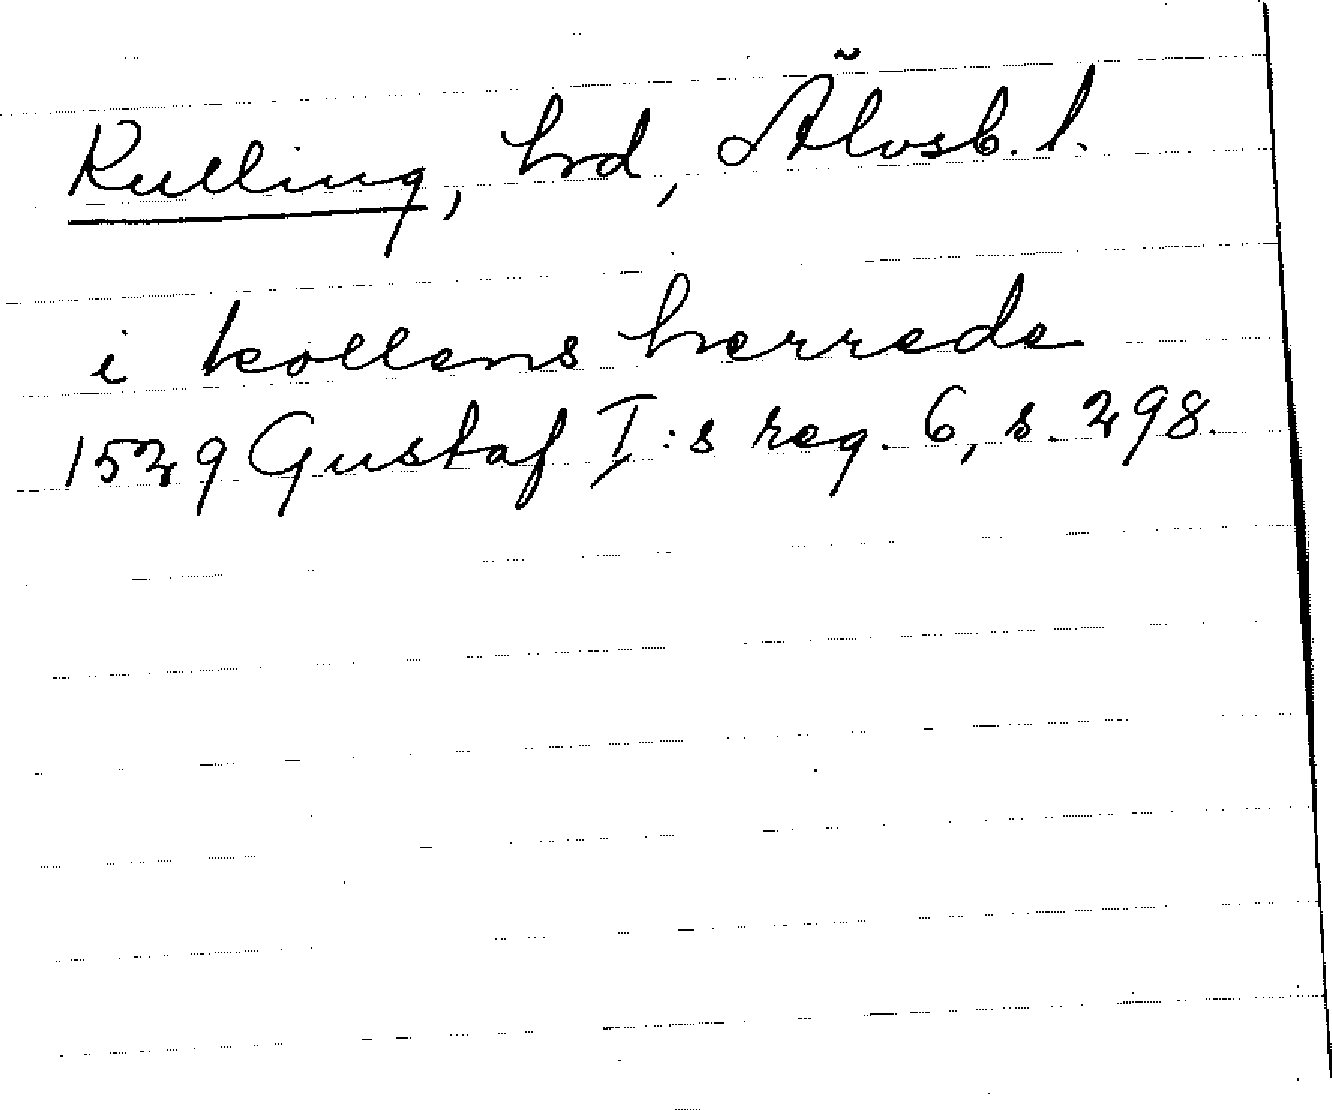 Kulling, hrd, Älvsb. l.
i kollens herrede
1529 Gustaf I:s reg. 6, s. 298.